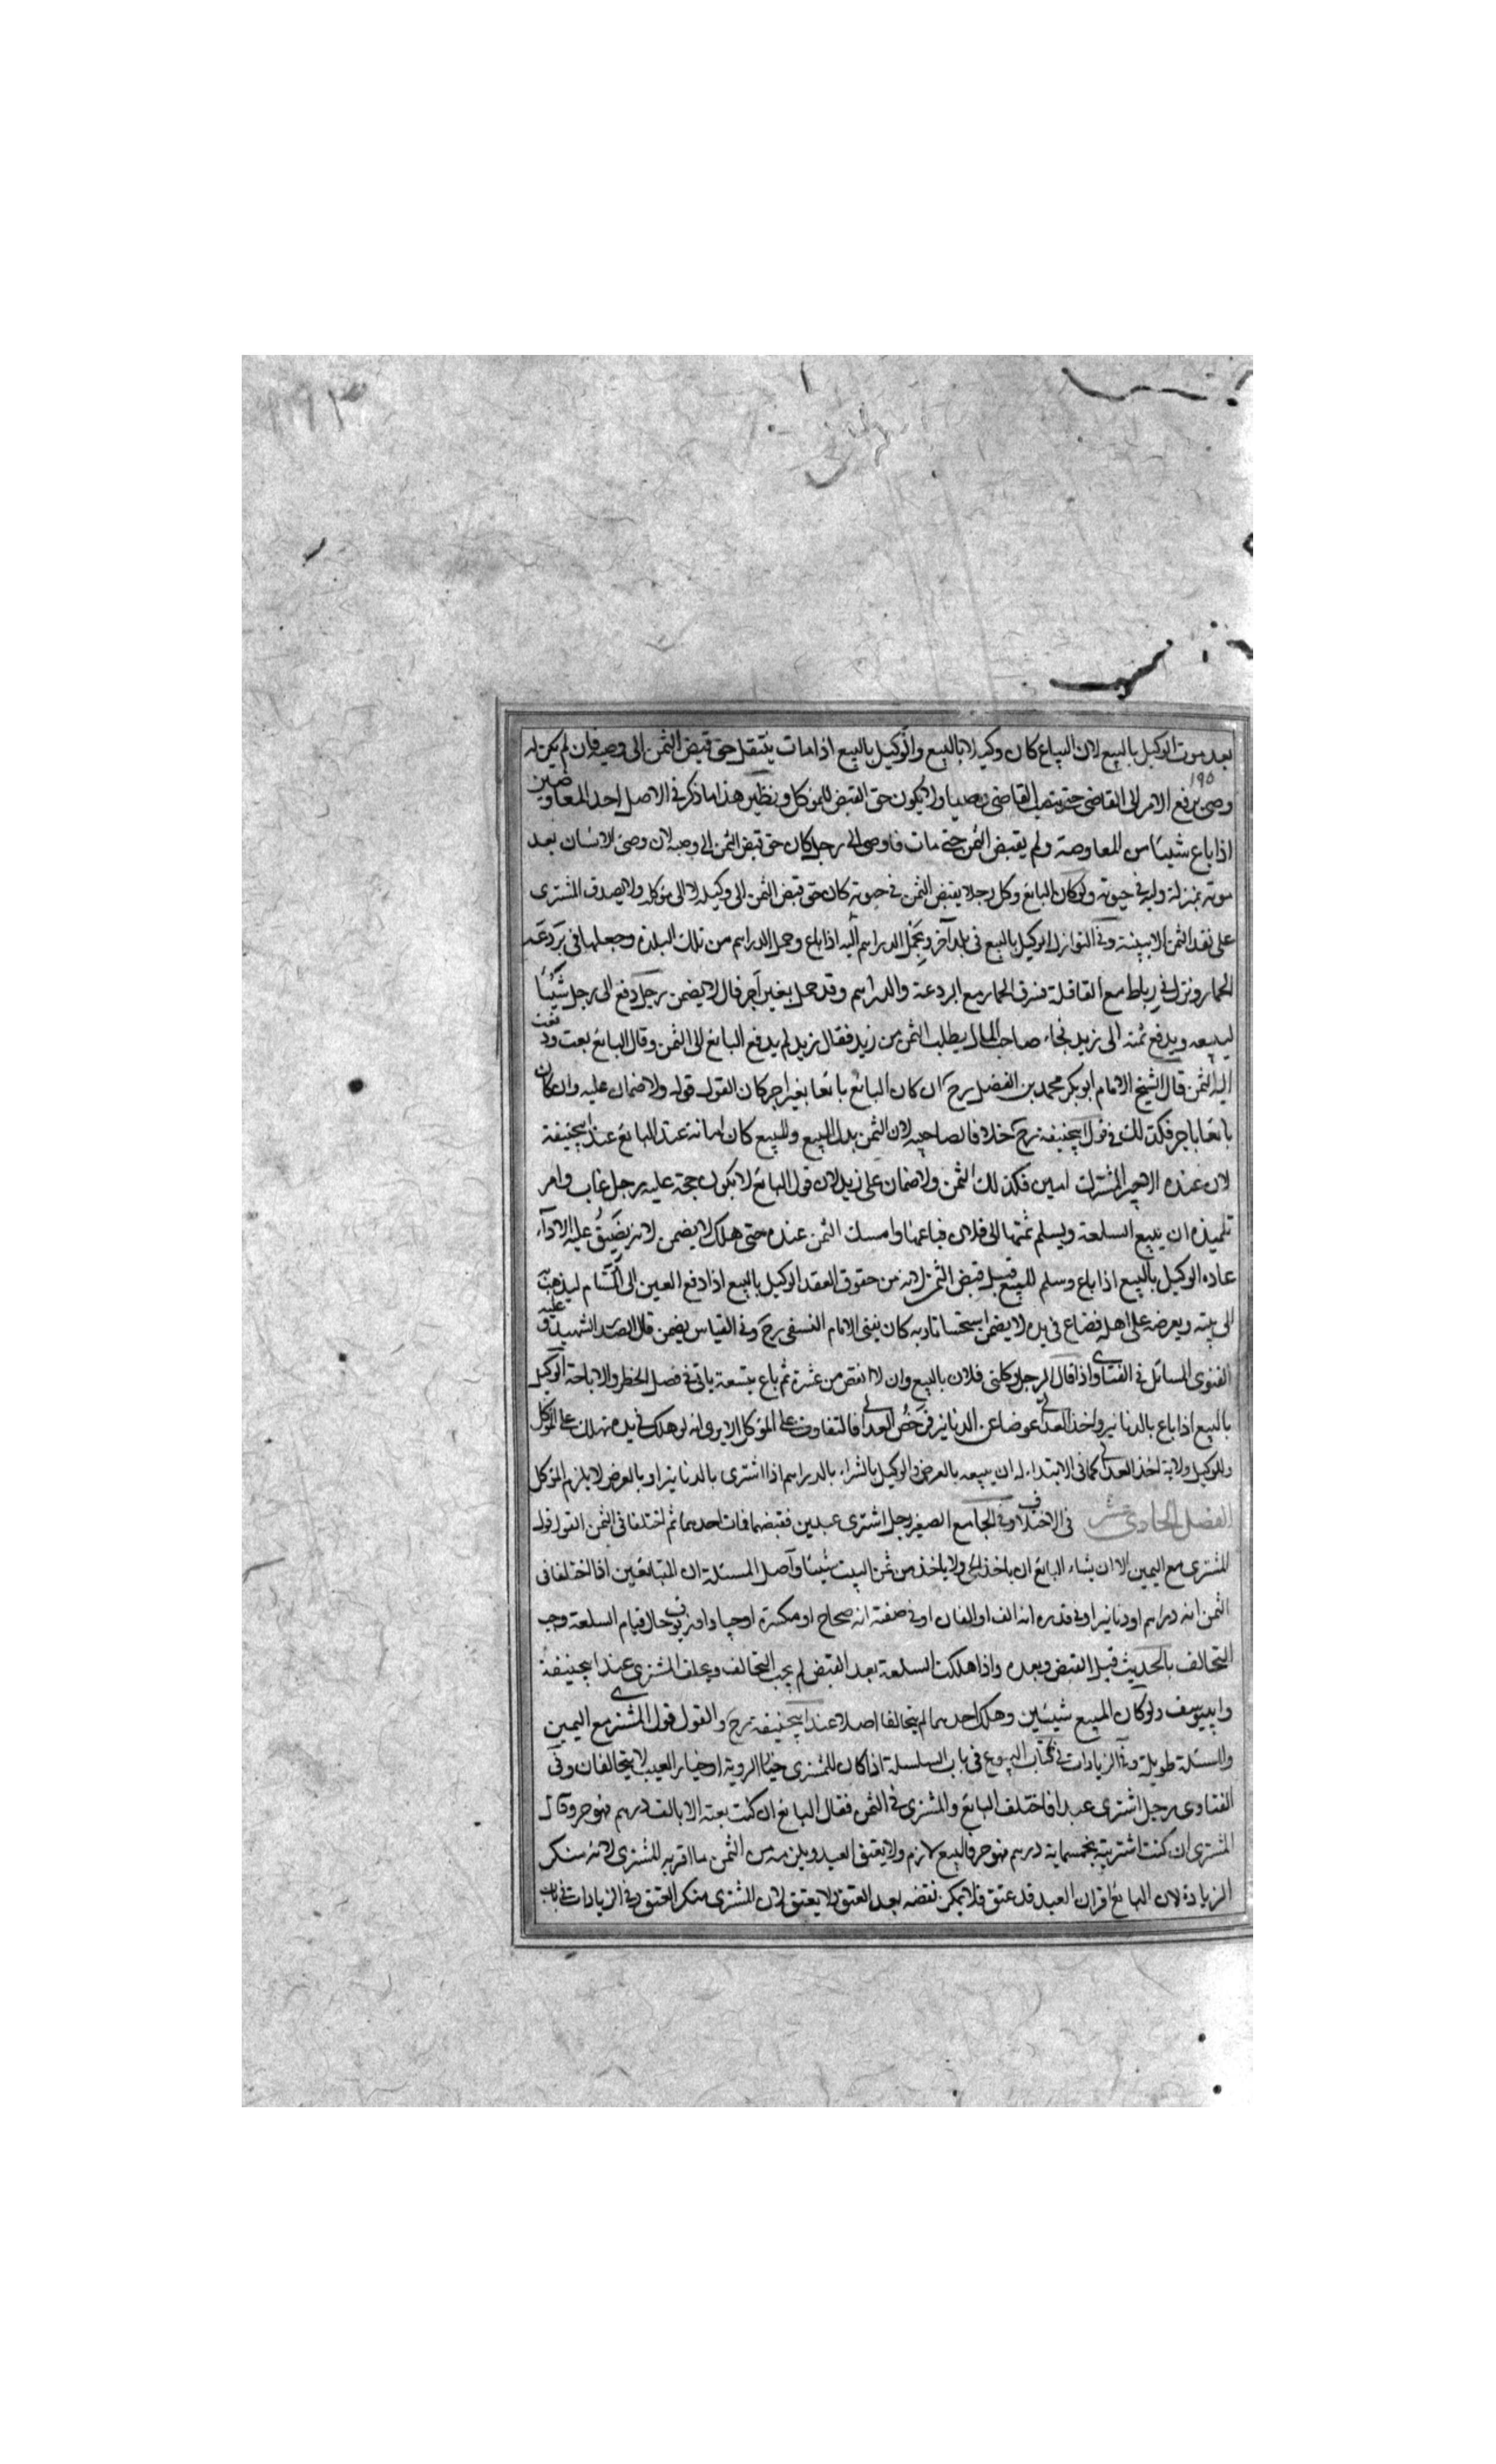 بعد موت الوكيل بالبيع لان البياع كان وكيلا بالبيع والوكيل بالبيع اذا مات ينتقل حق قبض الثمن الى وصيه فان لم يكن له
١٩٥
وصى يرفع الامر الى القاضى حتى ينصب القاضى وصيا ولا يكون حق القبض للموكل ونظير هذا ما ذكر فى الاصل احد المفاوضين
اذا باع شيئا من المفاوضة ولم يقبض الثمن حتى مات فاوصى الى رجل كان حق قبض الثمن الى وصيه لان وصى الانسان بعد
موته بمنزلة وليه فى حيوته ولو كان البائع وكل رجلا يقبض الثمن فى حيوته كان حق قبض الثمن الى وكيله لا الى موكله ولا يصدق المشترى
على نقد الثمن الا ببينة وفى النوازل الوكيل بالبيع فى بلد آخر وبحمل الدراهم اليه اذا باع وحمل الدراهم من تلك البلدة وجعلها فى بردعة
الحمار ونزل فى رباط مع القافلة فسرق الحمار مع البردعة والدراهم وقد حمل بغير اجر قال لا يضمن رجل دفع الى رجل شيئا
ليبيعه ويدفع ثمنه الى زيد فجاء صاحب المال يطلب الثمن من زيد فقال زيد لم يدفع البائع الى الثمن وقال البائع بعت ودفعت
اليه الثمن قال الشيخ الامام ابو بكر محمد بن الفضل رح ان كان البائع بائعا بغير اجر كان القول قوله ولا ضمان عليه وان كان
بائعا باجر فكذلك فى قول ابيحنيفة رح خلافا لصاحبيه لان الثمن بدل المبيع والمبيع كان امانة عند البائع عند ابيحنيفة
لان عنده الاجير المشترك امين فكذلك الثمن ولا ضمان على زيد لان قول البائع لا يكون حجة عليه رجل غاب وامر
تلميذه ان يبيع السلعة ويسلم ثمنها الى فلان فباعها وامسك الثمن عنده حتى هلك لا يضمن لانه يضيق عليه الاداء
عادة الوكيل بالبيع اذا باع وسلم المبيع قبل قبض الثمن لانه من حقوق العقد الوكيل بالبيع اذا دفع العين الى ليذهب
الى بيته ويعرضه على اهله فضاع فى يده لا يضمن استحسانا وبه كان يفتى الامام النسفى رح وفى القياس يضمن قال الصدر الشهيد وعليه
الفتوى المسائل فى الفتاوى واذا قال الرجل وكلنى فلان بالبيع وان لا انقص من عشرة ثم باع بتسعة ياتى فى فصل الحظر والاباحة الوكيل
بالبيع اذا باع بالدنانير واخذ العدلى عوضا عن الدنانير فرخص العدلى فالتفاوت على الموكل الا يرى انه لو هلك فى يده يهلك على الموكل
وللوكيل ولاية اخذ العدلى كما فى الابتداء له ان يبيعه بالعرض والوكيل بالشراء بالدراهم اذا اشترى بالدنانير او بالعرض لا يلزم الموكل
الفصل الحادى عشر فى الاختلاف وفى الجامع الصغير رجل اشترى عبدين فقبضهما فمات احدهما ثم اختلفا فى الثمن القول قول
المشترى مع اليمين الا ان يشاء البائع ان ياخذ الحى ولا ياخذ من ثمن الميت شيئا واصل المسئلة ان المتبائعين اذا اختلفا فى
الثمن انه دراهم او دنانير او فى قدره انه الف او الفان او فى صفته انه صحاح او مكسرة او جياد او زيوف حال قيام السلعة وجب
التحالف بالحديث قبل القبض وبعده واذا هلكت السلعة بعد القبض لم يجب التحالف وحلف المشترى عند ابيحنيفة
وابييوسف ولو كان المبيع شيئين وهلك احدهما لم يتحالفا اصلا عند ابيحنيفة رح والقول قول المشترى مع اليمين
والمسئلة طويلة وفى الزيادات فى كتاب البيوع فى باب السلسلة اذا كان للمشترى خيار الروية او خيار العيب لا يتحالفان وفى
الفتاوى رجل اشترى عبدا فاختلف البائع والمشترى فى الثمن فقال البائع ان كنت بعته الا بالف درهم فهو حر وقال
المشترى ان كنت اشتريته بخمسماية درهم فهو حر فالبيع لازم ولا يعتق العبد ويلزمه من الثمن ما اقر به المشترى لانه منكر
الزيادة لان البائع اقر ان العبد قد عتق فلا يمكن نقضه بعد العتق ولا يعتق لان المشترى منكر العتق وفى الزيادات فى باب